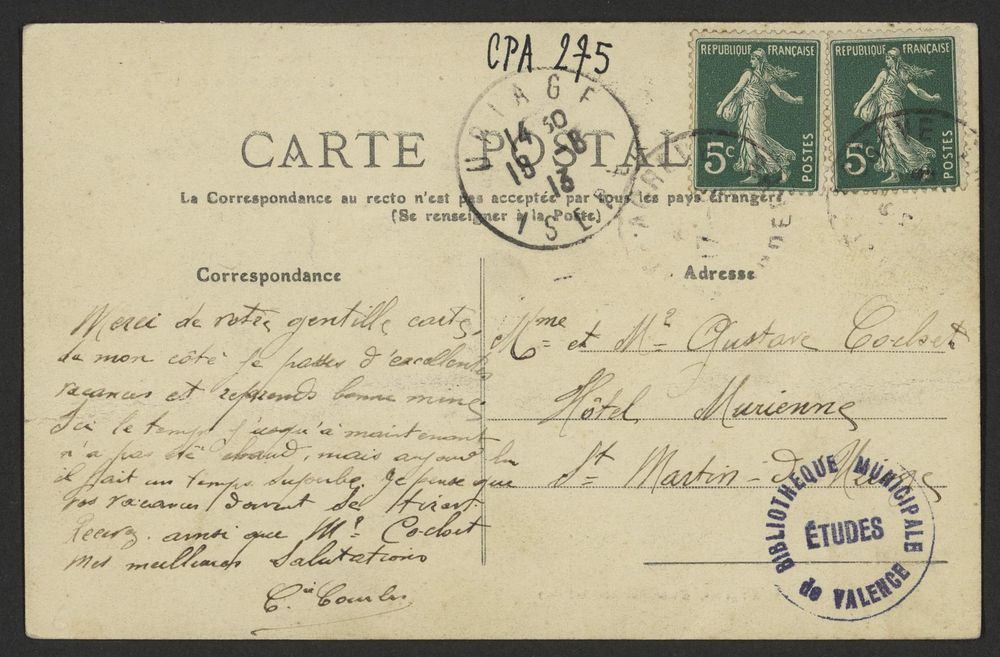 CPA 275
REPUBLIQUE FRANÇAISE
5c
POSTES
REPUBLIQUE FRANÇAISE
5c
POSTES
URIAGE
14 30
18 -8
13
ISERE
CARTE POSTALE
La Correspondance au recto n'est pas acceptée par tous les pays étrangers
(Se renseigner à la Poste)
Correspondance
Adresse
Merci de votre gentille carte,
de mon côté je passe d'excellentes
vacances et reprends bonne mine
Ici le temps jusqu'à maintenant
n'a pas été chaud, mais aujourd'hui
il fait un temps superbe. Je pense que
vos vacances doivent se tirer.
Recevez ainsi que Mr Cochet
mes meilleures salutations
Mme et Mr Gustave Cochet
Hôtel Murienne
St Martin-de
BIBLIOTHEQUE MUNICIPALE
ÉTUDES
de VALENCE